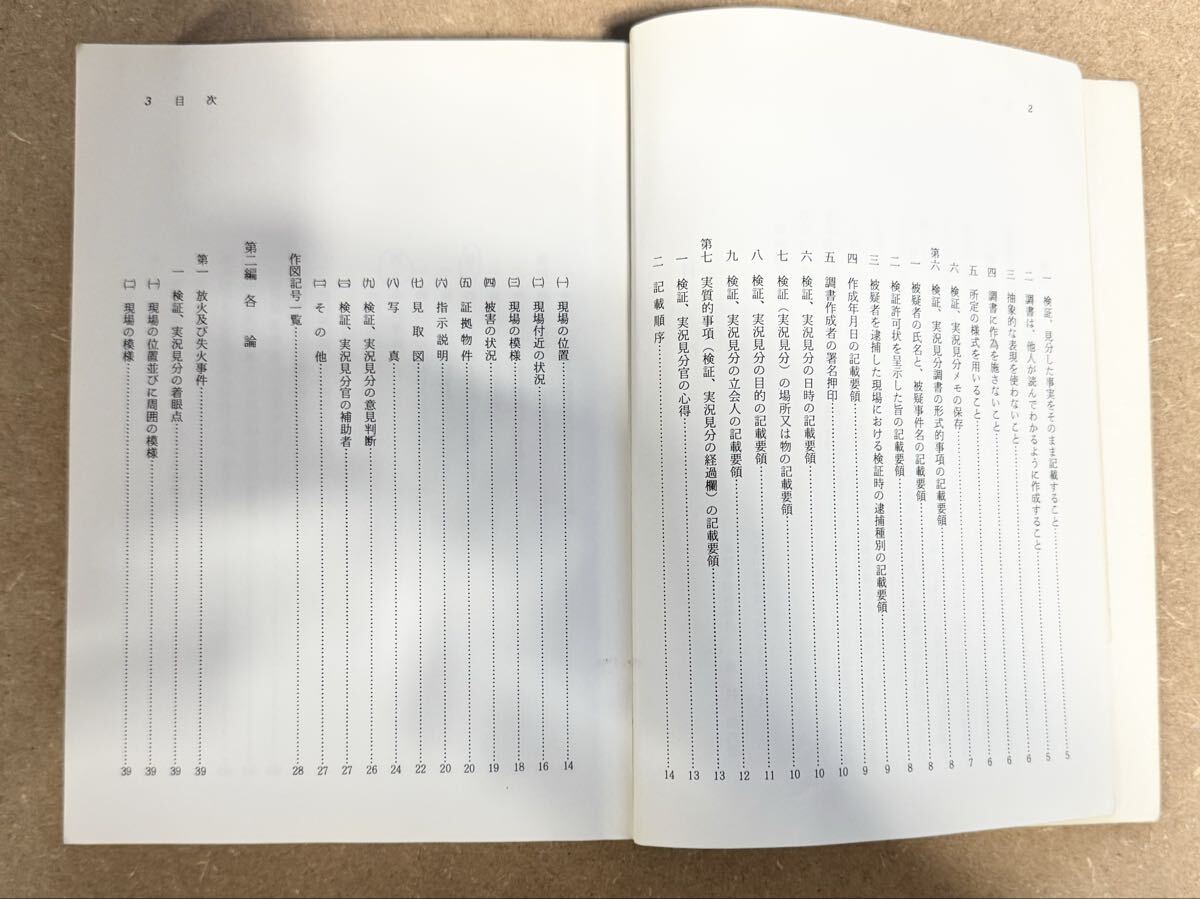 2
一 検証、見分した事実をそのまま記載すること……5
二 調書は、他人が読んでわかるように作成すること……5
三 抽象的な表現を使わないこと……6
四 調書に作為を施さないこと……6
五 所定の様式を用いること……6
六 検証、実況見分メモの保存……7
第六 検証、実況見分調書の形式的事項の記載要領……8
一 被疑者の氏名と、被疑事件名の記載要領……8
二 検証許可状を呈示した旨の記載要領……8
三 被疑者を逮捕した現場における検証時の逮捕種別の記載要領……9
四 作成年月日の記載要領……9
五 調書作成者の署名押印……10
六 検証、実況見分の日時の記載要領……10
七 検証(実況見分)の場所又は物の記載要領……10
八 検証、実況見分の目的の記載要領……11
九 検証、実況見分の立会人の記載要領……12
第七 実質的事項(検証、実況見分の経過欄)の記載要領……13
一 検証、実況見分官の心得……13
二 記載順序……14
3 目次
㈠ 現場の位置……14
㈡ 現場付近の状況……16
㈢ 現場の模様……18
㈣ 被害の状況……19
㈤ 証拠物件……20
㈥ 指示説明……20
㈦ 見取図……22
㈧ 写真……24
㈨ 検証、実況見分の意見判断……26
検証、実況見分官の補助者……27
その他……27
作図記号一覧……28
第二編 各論
第一 放火及び失火事件……39
一 検証、実況見分の着眼点……39
㈠ 現場の位置並びに周囲の模様……39
㈡ 現場の模様……39